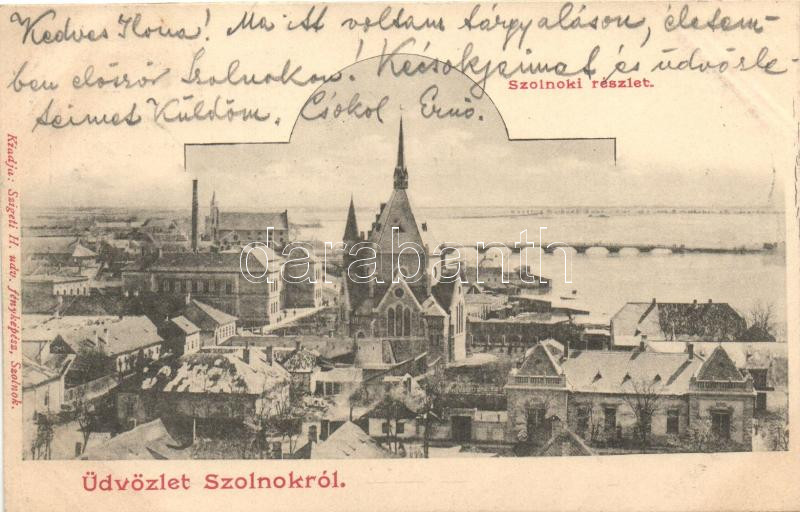 Kedves Ilona! Ma itt voltam tárgyaláson, életem-
ben először Szolnokon! Kézcsókjaimat és üdvözle-
teimet Küldöm. Csókol Ernő.
Szolnoki részlet.
Kiadja: Szigeti H. udv. fényképész, Szolnok.
darabanth.com
Üdvözlet Szolnokról.